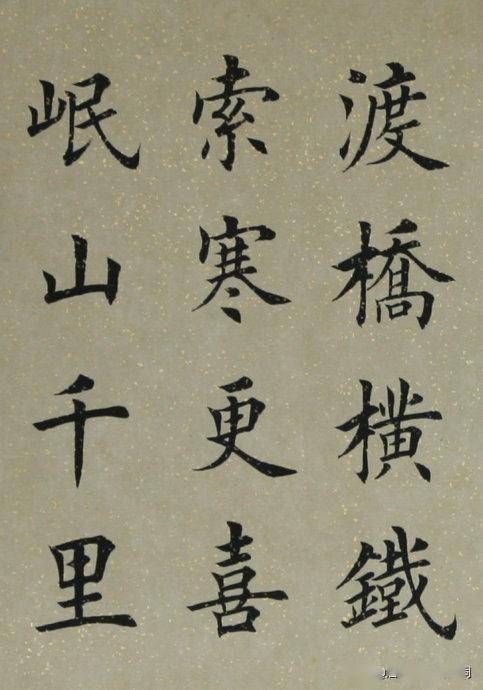 渡橋橫鐵
索寒更喜
岷山千里